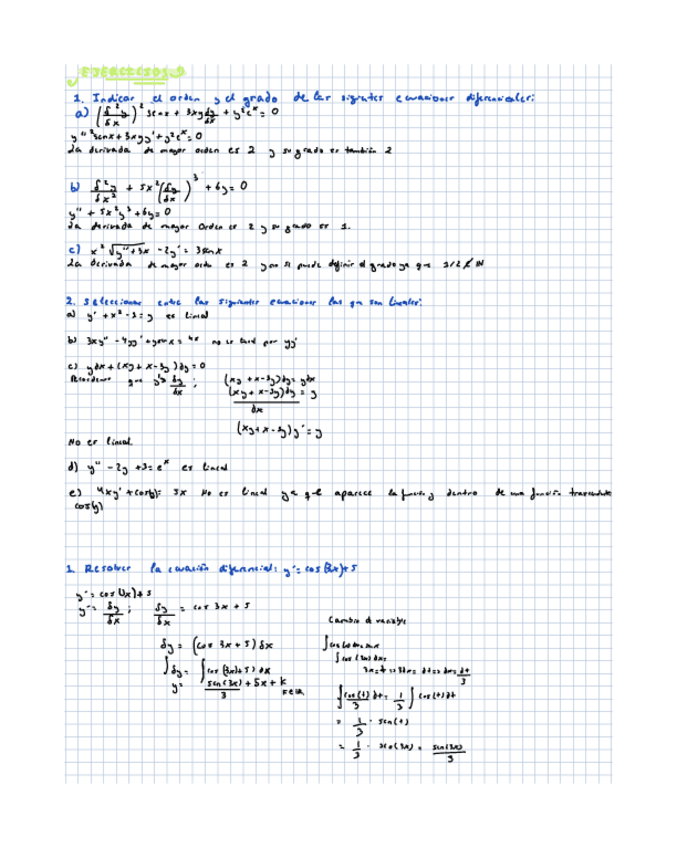 EJERCICIOS
1. Indicar el orden y el grado de las siguientes ecuaciones diferenciales:
a) (δ²y/δx)² senx + 3xy dy/dx + y²e^x = 0
y''² senx + 3xyy' + y²e^x = 0
La derivada de mayor orden es 2 y su grado es también 2
b) δ²y/δx² + 5x²(dy/dx)³ + 6y = 0
y'' + 5x²y³ + 6y = 0
La derivada de mayor orden es 2 y su grado es 1.
c) x² √(y''+3x) - 2y' = 3senx
La derivada de mayor orden es 2 y no se puede definir el grado ya que 1/2 ∉ IN
2. Seleccionar entre las siguientes ecuaciones las que son lineales:
a) y' + x² - 3 = y es lineal
b) 3xy'' - 4yy' + ysenx = 4x no es lineal por yy'
c) ydx + (xy + x - 3y)dy = 0
Recordemos que y' = dy/dx ; (xy + x - 3y)dy = ydx
(xy + x - 3y)dy / dx = y
(xy + x - 3y)y' = y
No es lineal.
d) y'' - 2y + 3 = e^x es lineal
e) 4xy' + cos(y) = 5x No es lineal ya que aparece la función y dentro de una función trascendente
cos(y)
1. Resolver la ecuación diferencial: y' = cos(3x)+5
y' = cos(3x)+5
y' = δy/δx ; δy/δx = cos 3x + 5
Cambio de variable
δy = (cos 3x + 5) δx
∫δy = ∫(cos(3x)+5) dx
y = sen(3x)/3 + 5x + k
∫cos(3x) dx =
3x = t => 3dx = dt => dx = dt/3
∫cos(t)/3 dt = 1/3 ∫cos(t) dt
= 1/3 · sen(t)
= 1/3 · sen(3x) = sen(3x)/3